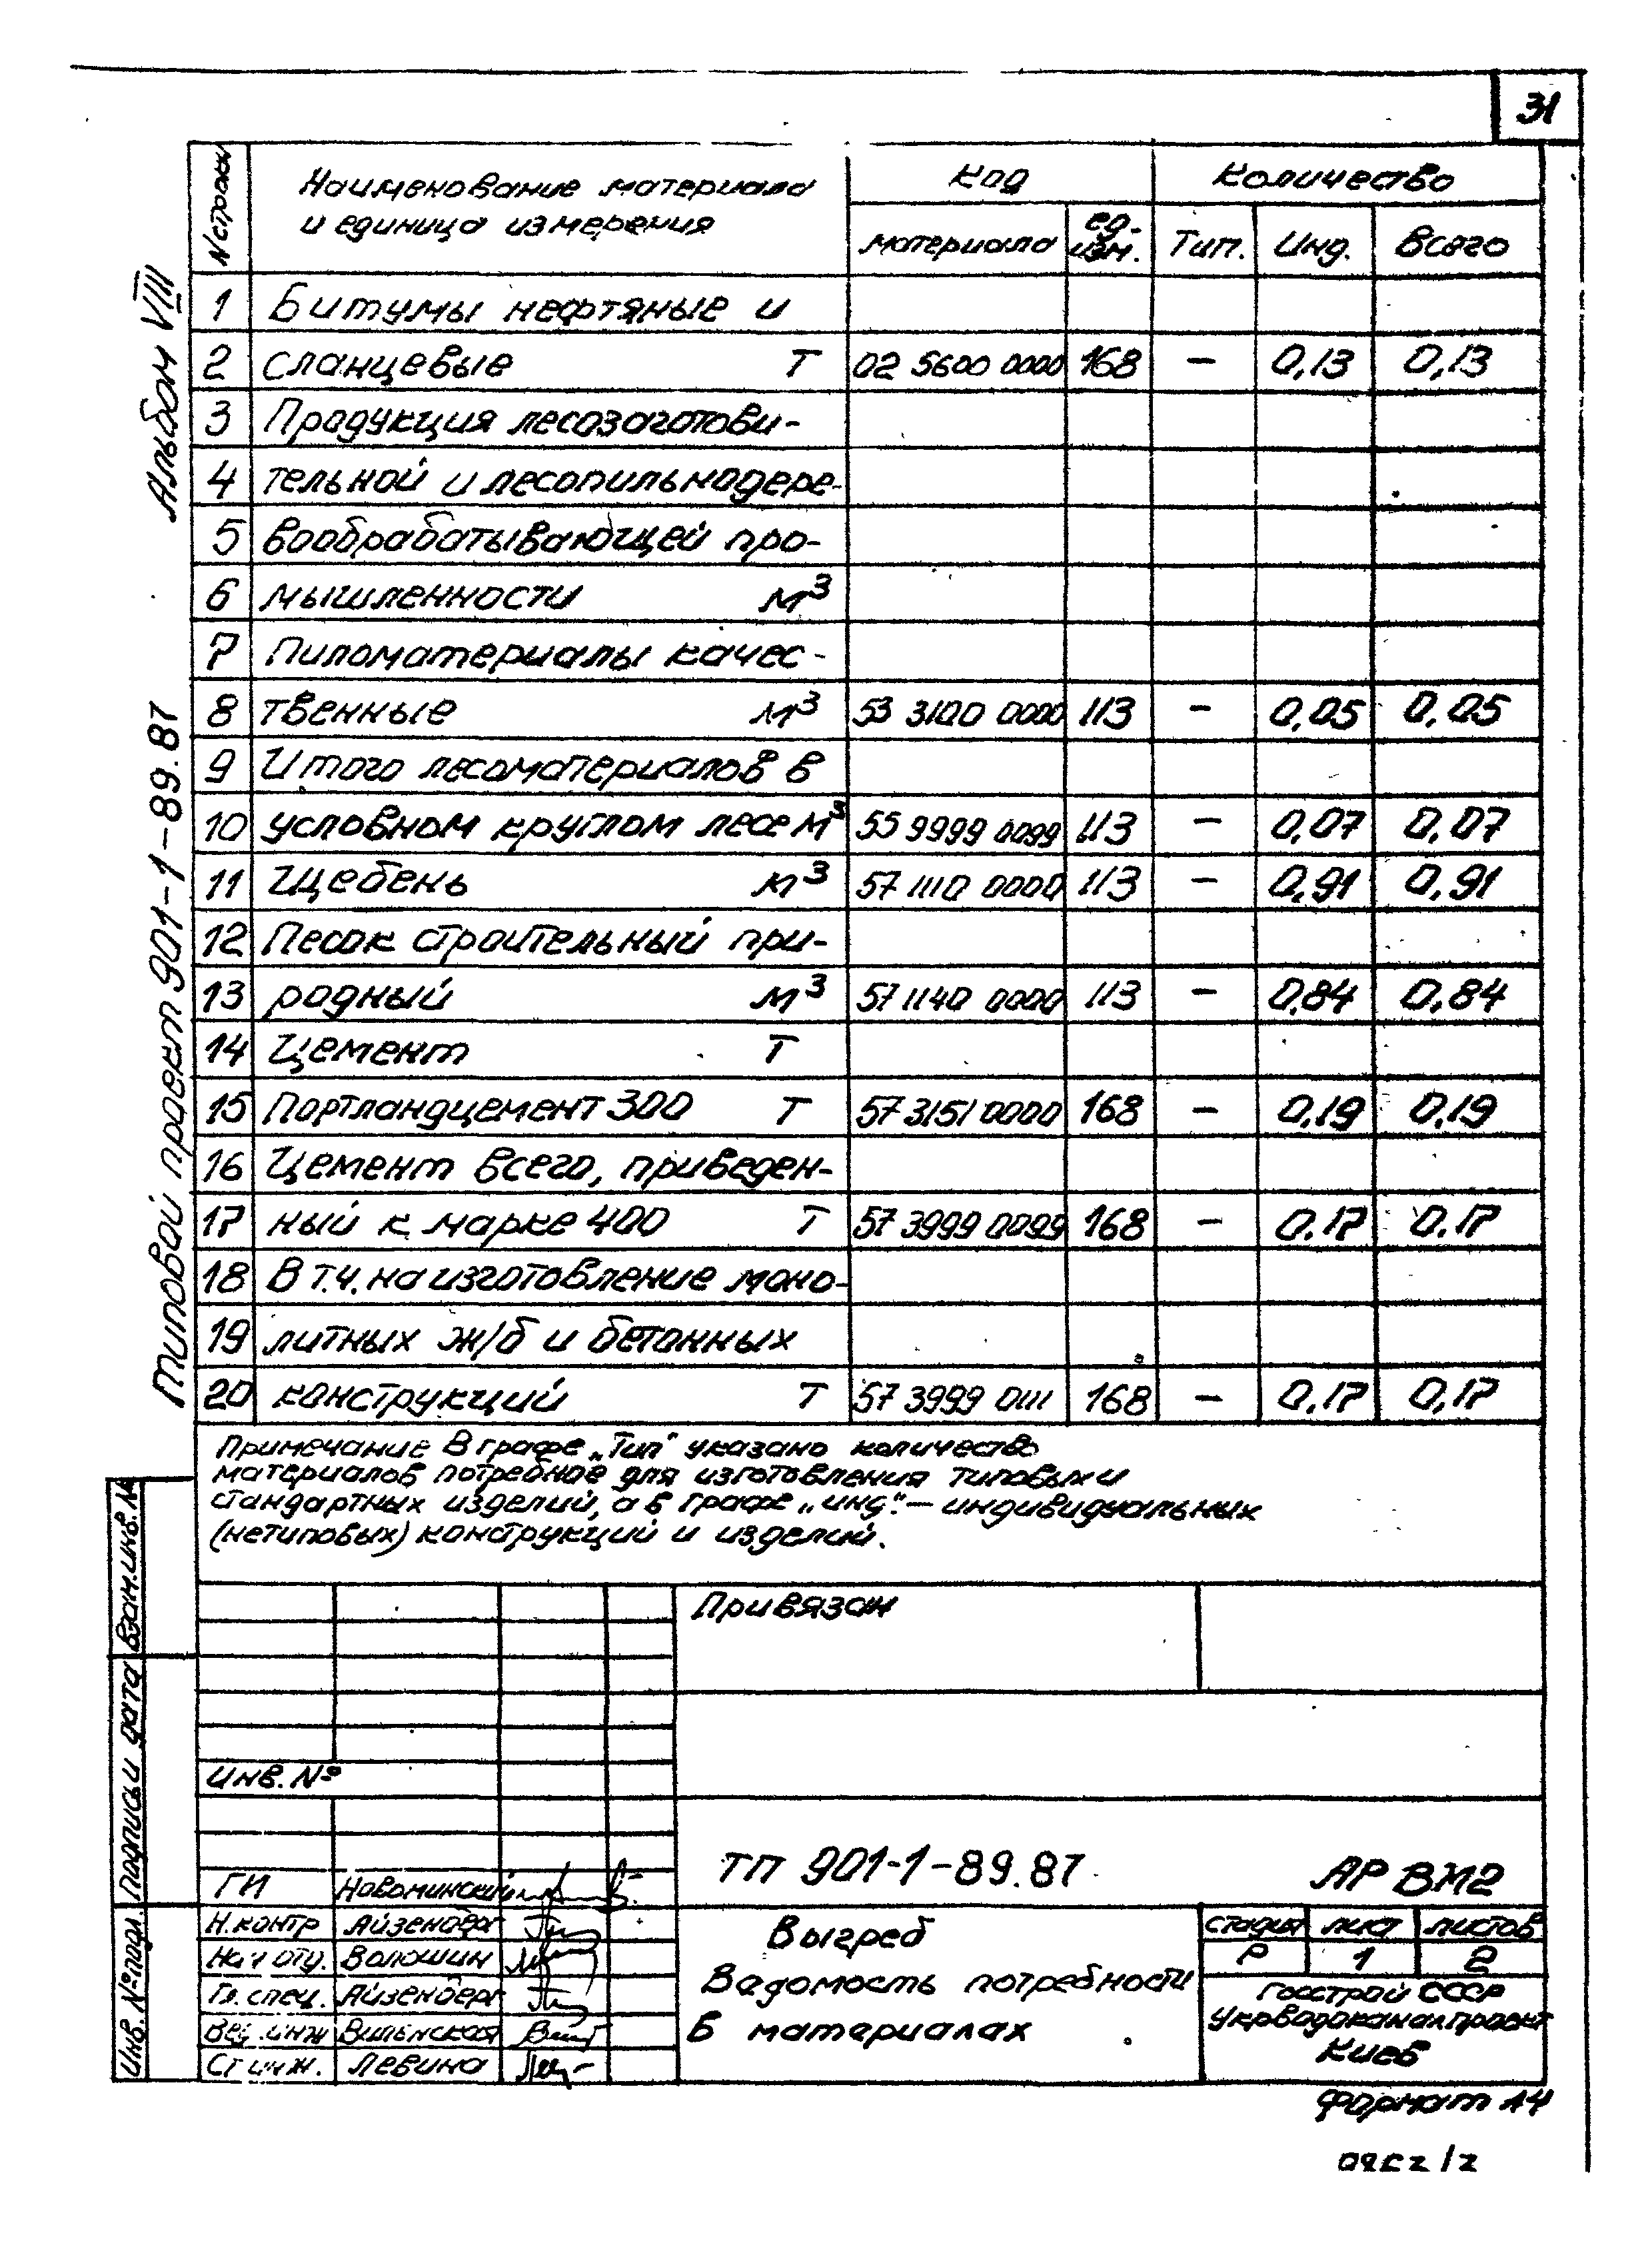 31
Альбом VIII
Типовой проект 901-1-89.87
N строки
Наименование материала
и единица измерения
Код
Количество
материала
ед.
изм.
Тип.
Инд.
Всего
1 Битумы нефтяные и
2 сланцевые Т 02 5600 0000 168 – 0,13 0,13
3 Продукция лесозаготови-
4 тельной и лесопильнодере-
5 вообрабатывающей про-
6 мышленности м³
7 Пиломатериалы качес-
8 твенные м³ 53 3100 0000 113 – 0,05 0,05
9 Итого лесоматериалов в
10 условном круглом лесе м³ 55 9999 0099 113 – 0,07 0,07
11 Щебень м³ 57 1110 0000 113 – 0,91 0,91
12 Песок строительный при-
13 родный м³ 57 1140 0000 113 – 0,84 0,84
14 Цемент Т
15 Портландцемент 300 Т 57 3151 0000 168 – 0,19 0,19
16 Цемент всего, приведен-
17 ный к марке 400 Т 57 3999 0099 168 – 0.17 0.17
18 В т.ч. на изготовление моно-
19 литных ж/б и бетонных
20 конструкций Т 57 3999 0111 168 – 0,17 0,17
Примечание В графе „Тип" указано количество
материалов потребное для изготовления типовых и
стандартных изделий, а в графе „инд." – индивидуальных
(нетиповых) конструкций и изделий.
Привязан
Инв. №
Взам. инв. №
Подпись и дата
Инв. № подл.
ТП 901-1-89.87
АР ВМ2
ГИ Новоминский
Н.контр Айзенберг
Нач отд. Волошин
Гл. спец. Айзенберг
Вед. инж Виленская
Ст инж. Левина
Выгреб
Ведомость потребности
в материалах
стадия лист листов
Р 1 2
Госстрой СССР
Укрводоканалпроект
Киев
Формат А4